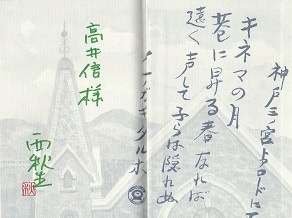 神戸三ノ宮トアロードにて
キネマの月
巷に昇る春なれば
遠く声して子らは隠れぬ
イナガキタルホ
高井信様
西秋生